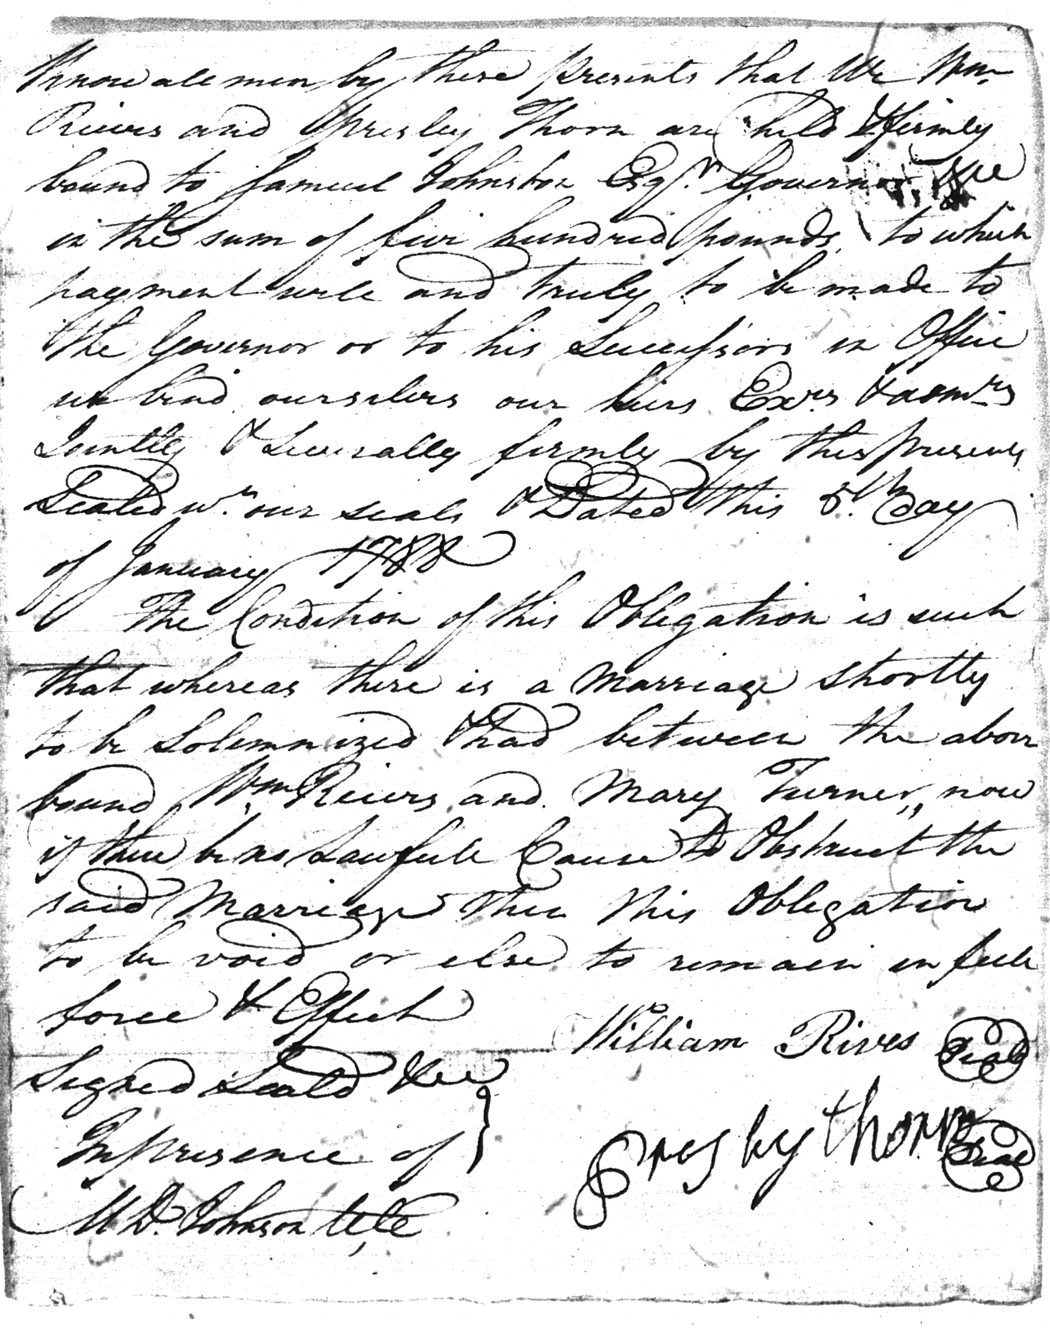 Know all men by these presents that We Wm
Rievs and Presley Thorn are held & firmly
bound to Samuel Johnston Esqr. Governor &ce
in the sum of five hundred pounds, to which
payment well and truly to be made to
the Governor or to his Successors in Office
we bind ourselves our heirs Exrs & admrs
Jointly & Severally firmly by these presents
Sealed wr. our seals & Dated this 5th. Day
of January 1788
The Condition of this Obligation is such
that whereas there is a Marriage Shortly
to be Solemnized & had between the above
bound Wm Rievrs and Mary Turner, now
if there be no Lawfull Cause to Obstruct the
said Marriage then this Obligation
to be void or else to remain in full
force & Effect
William Rives Seal
Signed Seald &ce
In presence of
Presly thorn Seal
M D. Johnson